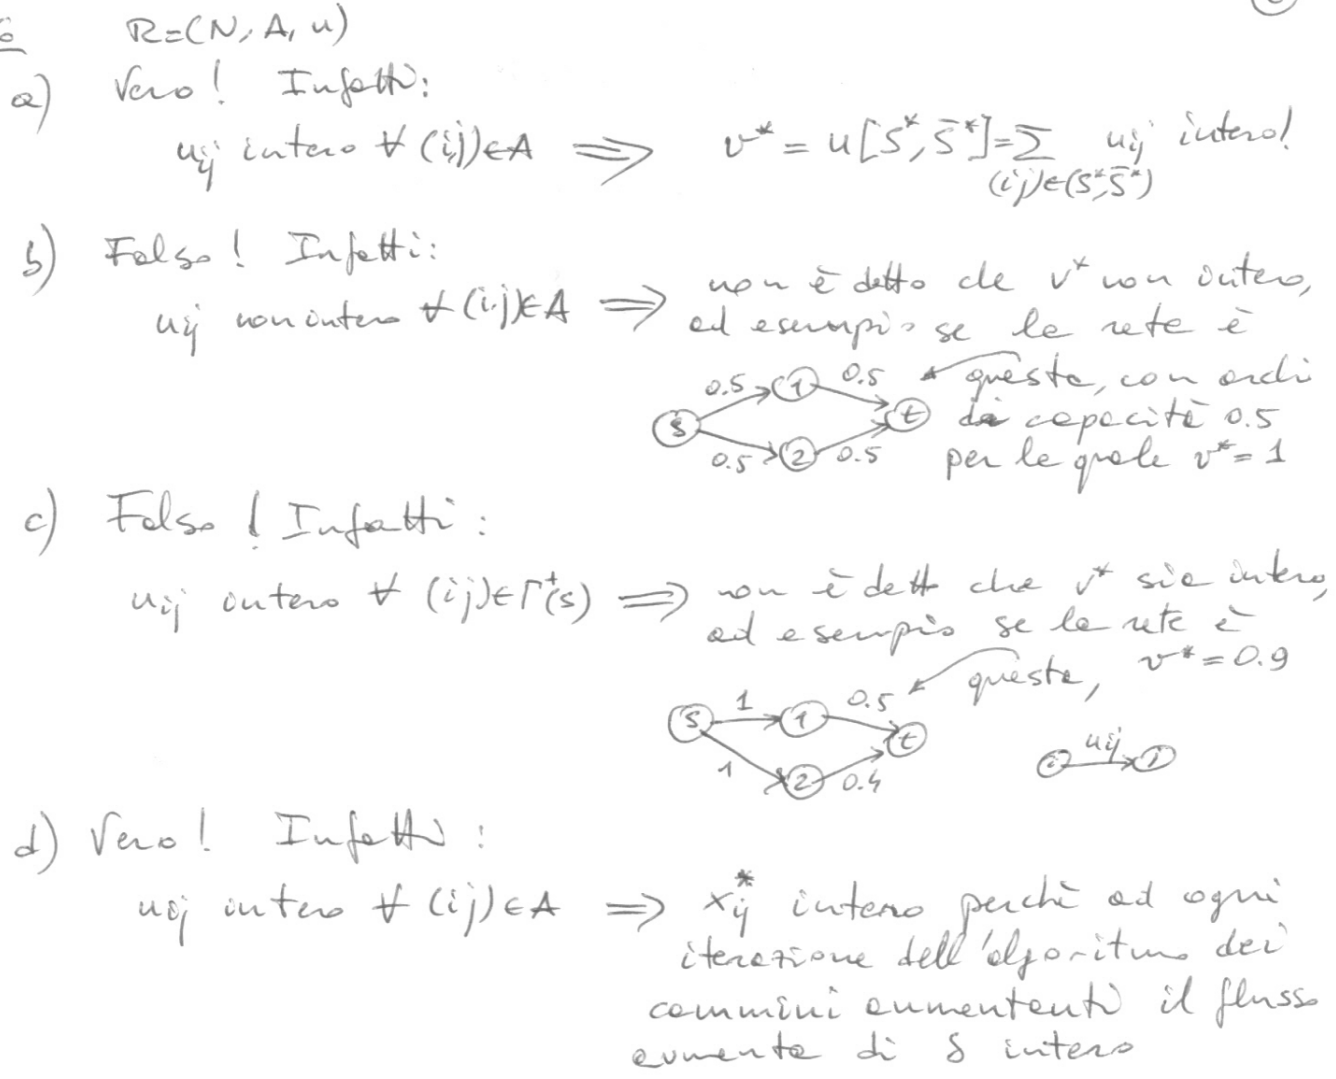 R=(N, A, u)
a) Vero! Infatti:
uij intero ∀ (i,j)∈A ⟹ v* = u[S*, S̄*] = Σ uij intero!
(i,j)∈(S*,S̄*)
b) Falso! Infatti:
uij non intero ∀ (i,j)∈A ⟹ non è detto che v* non intero,
ad esempio se la rete è
questa, con archi
di capacità 0.5
per la quale v* = 1
0.5 1 0.5
s t
0.5 2 0.5
c) Falso! Infatti:
uij intero ∀ (i,j)∈Γ⁺(s) ⟹ non è detto che v* sia intero,
ad esempio se la rete è
questa, v* = 0.9
s 1 1 0.5
t
1 2 0.4
i uij j
d) Vero! Infatti:
uij intero ∀ (i,j)∈A ⟹ x*ij intero perchè ad ogni
iterazione dell'algoritmo dei
cammini aumentanti il flusso
aumenta di δ intero